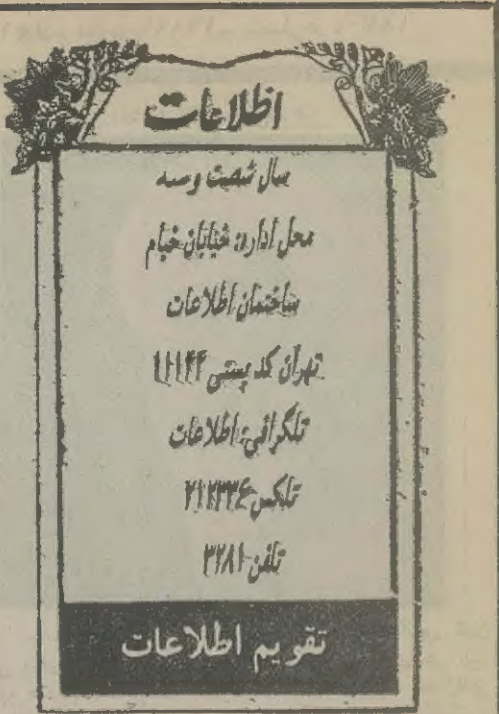 اطلاعات
سال شصت و سه
محل اداره: خیابان خیام
ساختمان اطلاعات
تهران کد پستی ۱۱۱۴۴
تلگرافی: اطلاعات
تلکس ۲۱۲۳۳٤
تلفن ۳۲۸۱
تقویم اطلاعات